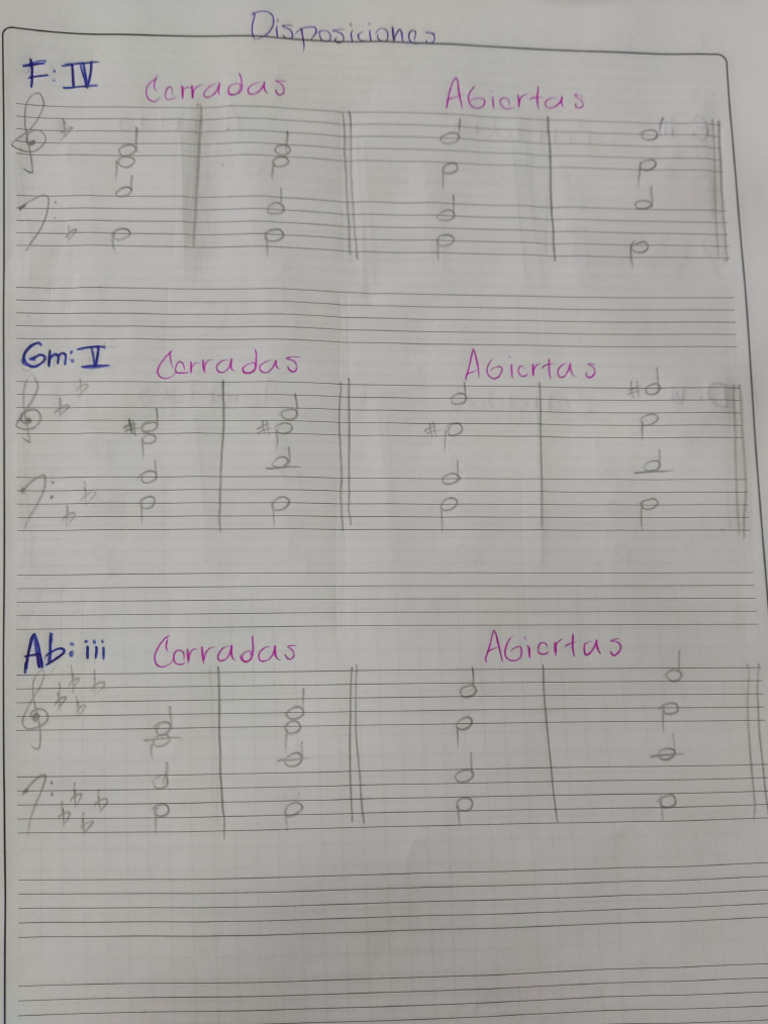 Disposiciones
F: IV Cerradas Abiertas
Gm: V Cerradas Abiertas
Ab: iii Cerradas Abiertas